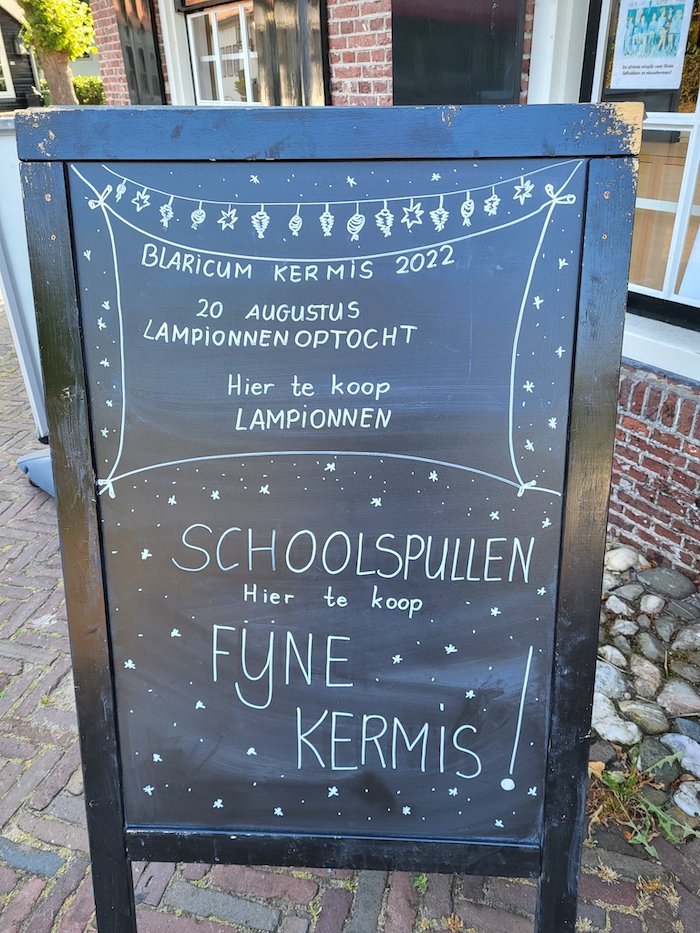 BLARICUM KERMIS 2022
20 AUGUSTUS
LAMPIONNENOPTOCHT
Hier te koop
LAMPIONNEN
SCHOOLSPULLEN
Hier te koop
FYNE
KERMIS!